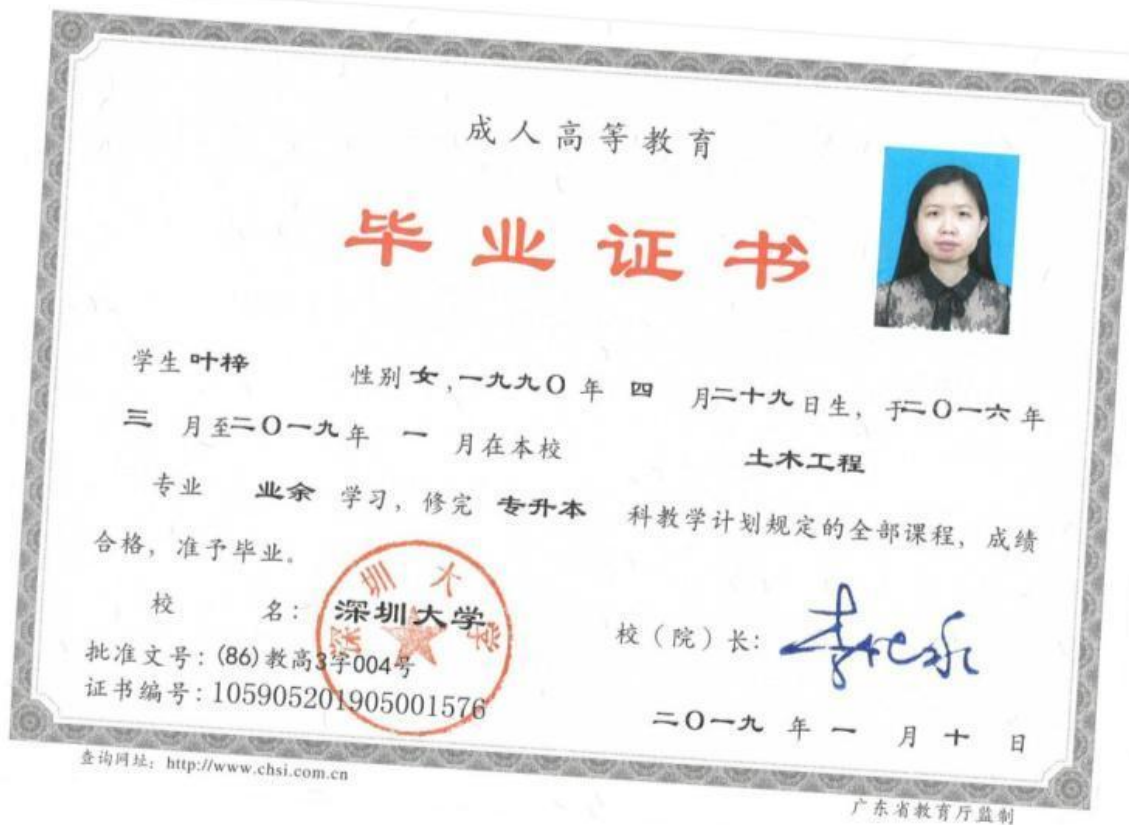 成人高等教育
毕业证书
学生 叶梓 性别 女,一九九〇 年 四 月二十九日生,于二〇一六年
三 月至二〇一九年 一 月在本校 土木工程
专业 业余 学习,修完 专升本 科教学计划规定的全部课程,成绩
合格,准予毕业。
校 名: 深圳大学
深圳大学
校(院)长: 李清泉
批准文号: (86)教高3字004号
证书编号: 105905201905001576
二〇一九 年 一 月 十 日
查询网址: http://www.chsi.com.cn
广东省教育厅监制